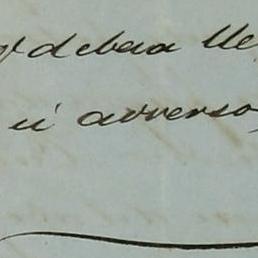 qᵉ debera lle
ú adverso,